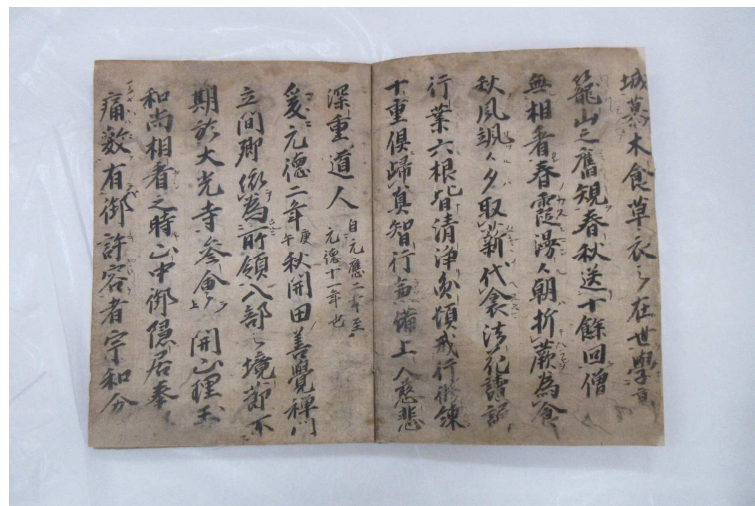 城慕木食草衣之在世學
籠山之舊規春秋送十餘回僧
無相看春霞漫々朝折蕨為食
秋風颯々夕取薪代衾法花讀誦
行業六根皆清浄 頓戒行
十重俱歸真智行兼備上人慈悲
深重道人 自元應二年至
元德十一年也
爰元德二年庚午秋開田善覺禅門
立間郷 為所領入部之境節不
期於大光寺參會 開山理玉
和尚相看之時山中御隠居奉
痛敷有御許容者宇和分